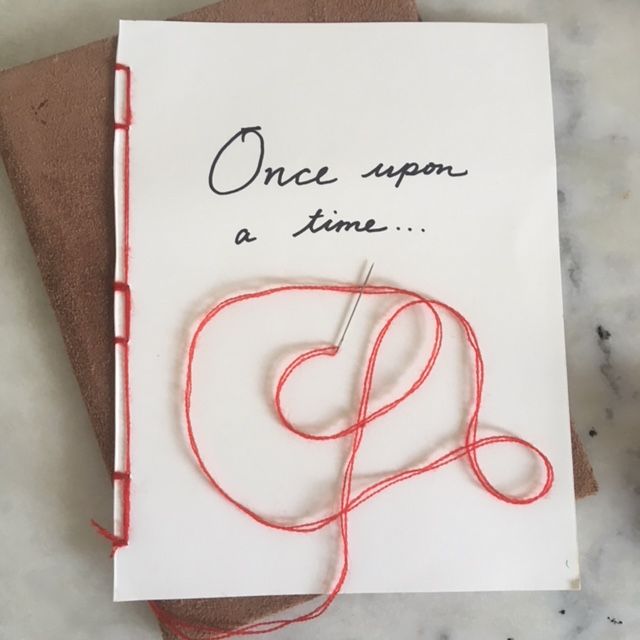 Once upon
a time...